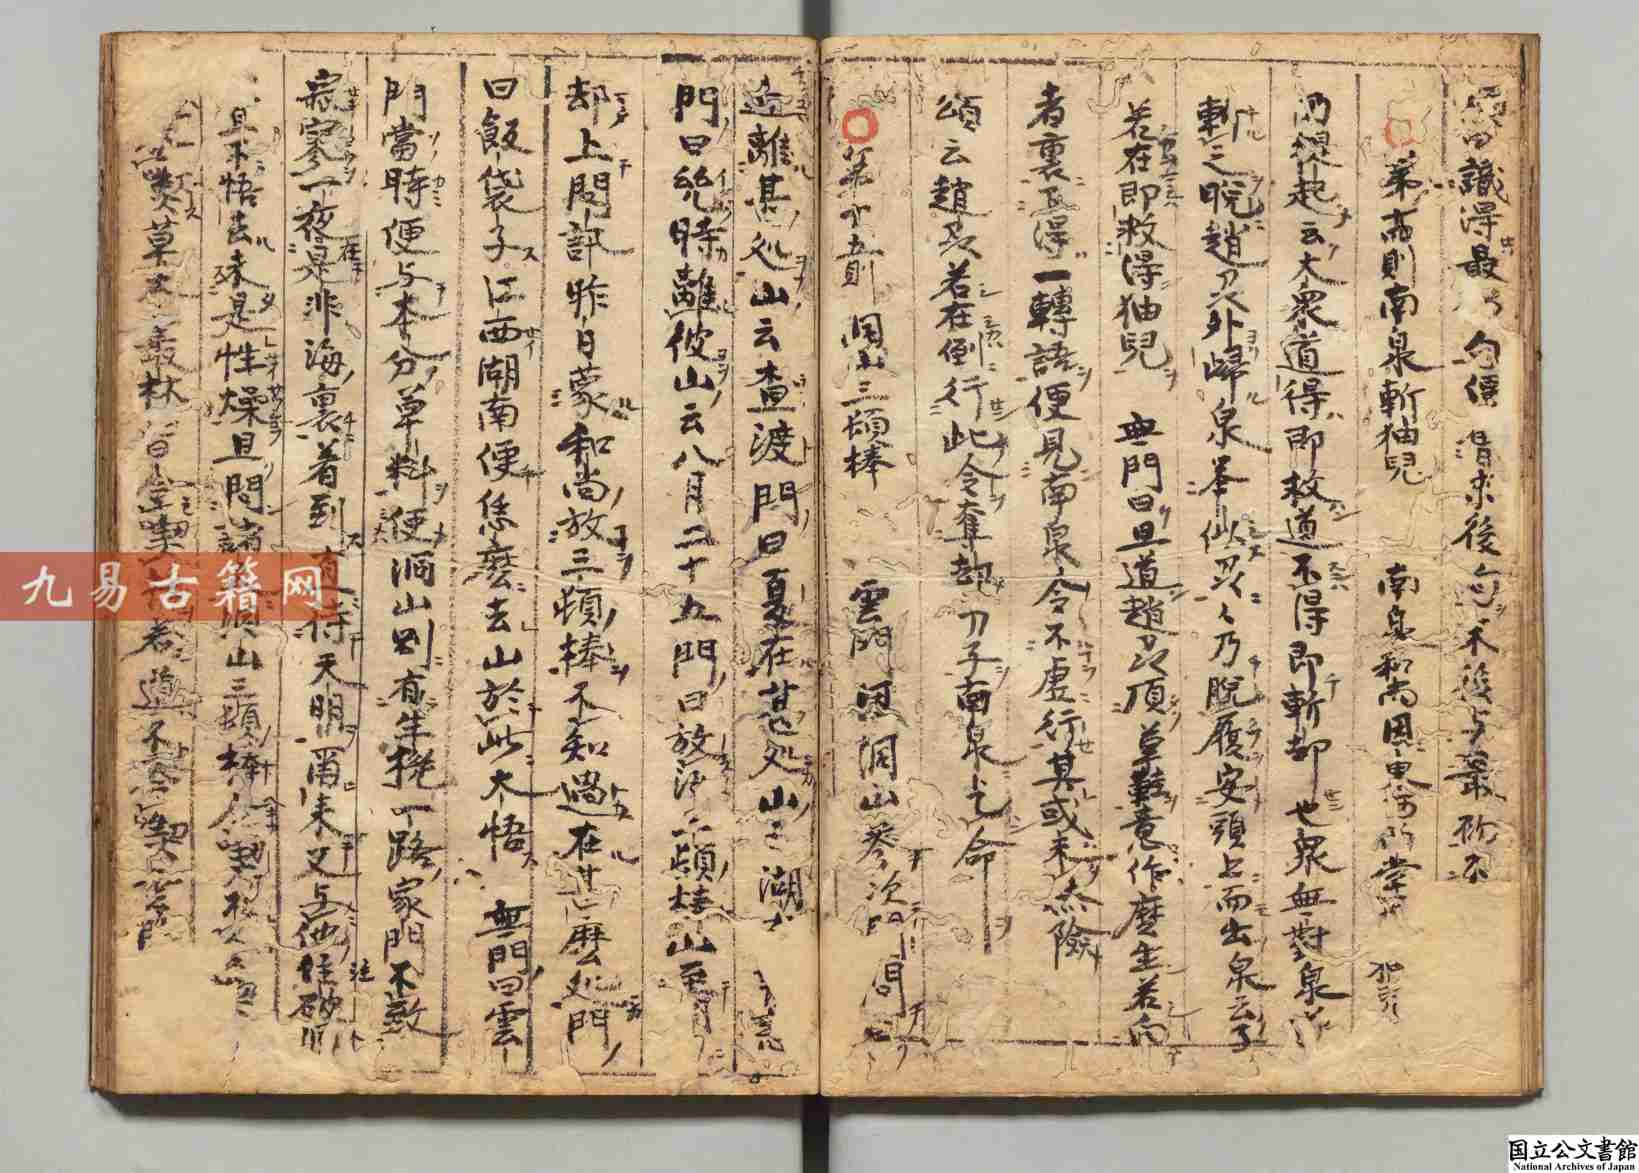 識得最初句便
第十四則南泉斬猫兒 南泉和尚因東西兩堂
乃提起云大衆道得即救道不得即斬却也衆無對泉
斬之晩趙州外歸泉擧似州州乃脱履安頭上而出泉云子
若在即救得猫兒 無門曰且道趙州頂草鞋意作麼生若向
者裏下得一轉語便見南泉令不虚行其或未然險
頌云趙州若在倒行此令奪却刀子南泉乞命
第十五則 洞山三頓棒 雲門因洞山參次門問
近離甚処山云査渡門曰夏在甚処山云湖
門曰幾時離彼山云八月二十五門曰放汝三頓棒山至明
却上問訊昨日蒙和尚放三頓棒不知過在甚麼処門
曰飯袋子江西湖南便恁麼去山於此大悟 無門曰雲
門當時便与本分草料使洞山別有生機一路家門不致
寂寥一夜是非海裏着到 待天明再來又与他注破洞
且不悟去未是性燥且問諸 洞山三頓棒
草木叢林皆 若道不
九易古籍网
国立公文書館
National Archives of Japan